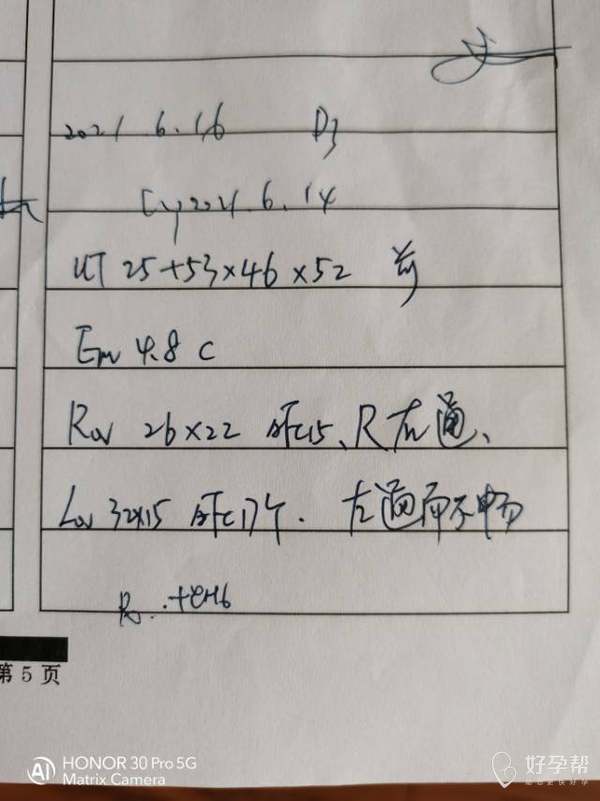 2021 6.16 D3
2021.6.14
UT 25+53×46×52
Em 4.8 C
Rov 26×22 AFC15、R 右通、
Lov 32×15 AFC17个. 左通而不畅
第 5 页
HONOR 30 Pro 5G
Matrix Camera
好孕帮